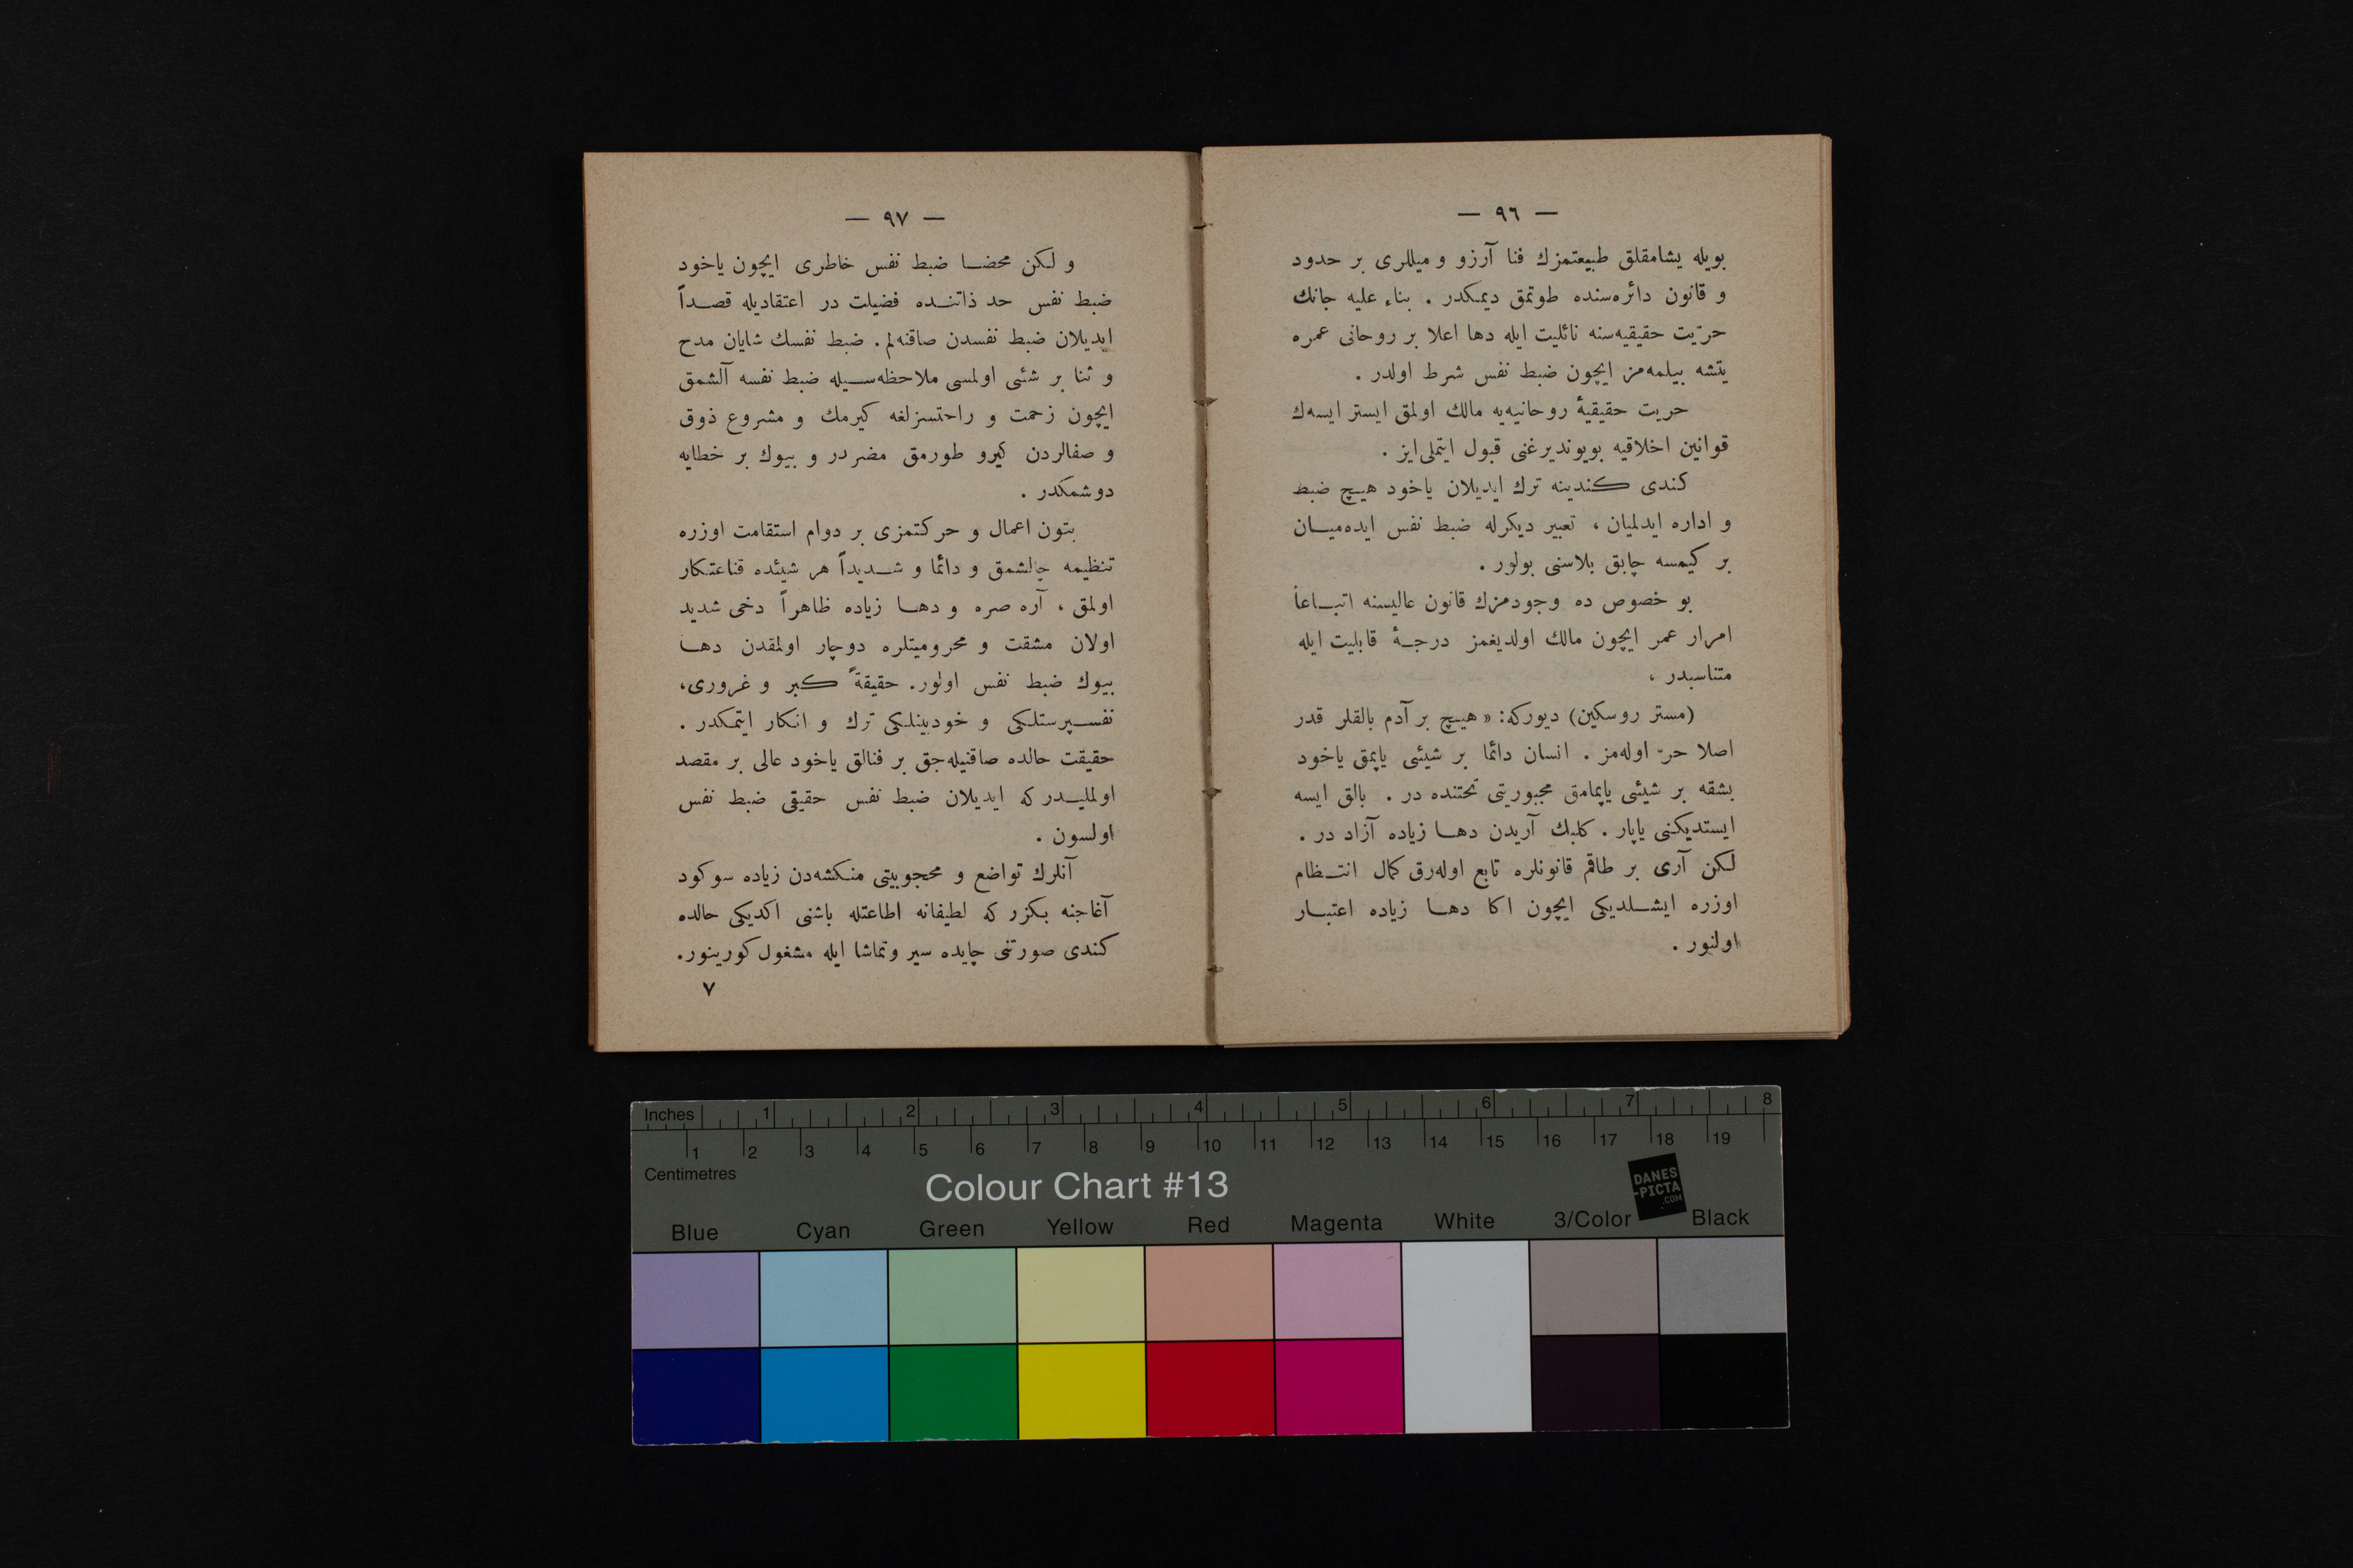 — ٩٦ —
بویله یشامقلق طبیعتمزك فنا آرزو و میللری بر حدود
و قانون دائره‌سنده طوتمق دیمکدر . بناء علیه جانك
حرّیت حقیقیه‌سنه نائلیت ایله دها اعلا بر روحانی عمره
یتشه بیلمه‌مز ایچون ضبط نفس شرط اولدر .
حریت حقیقیهٔ روحانیه‌یه مالك اولمق ایستر ایسه‌ك
قوانین اخلاقیه بویوندیرغنی قبول ایتملی‌ایز .
كندی كندینه ترك ایدیلان یاخود هیچ ضبط
و اداره ایدلمیان ، تعبیر دیكرله ضبط نفس ایده‌میان
بر كیمسه چابق بلاسنی بولور .
بو خصوص ده وجودمزك قانون عالیسنه اتباعاً
امرار عمر ایچون مالك اولدیغمز درجهٔ قابلیت ایله
متناسبدر ،
(مستر روسكین) دیوركه: « هیچ بر آدم بالقلر قدر
اصلا حرّ اوله‌مز . انسان دائما بر شیئی یاپمق یاخود
بشقه بر شیئی یاپمامق مجبوریتی تحتنده در . بالق ایسه
ایستدیكنی یاپار . كلبك آریدن دها زیاده آزاد در .
لكن آری بر طاقم قانونلره تابع اوله‌رق كمال انتظام
اوزره ایشلدیكی ایچون اكا دها زیاده اعتبار
اولنور .
— ٩٧ —
و لكن محضا ضبط نفس خاطری ایچون یاخود
ضبط نفس حد ذاتنده فضیلت در اعتقادیله قصداً
ایدیلان ضبط نفسدن صاقنه‌لم . ضبط نفسك شایان مدح
و ثنا بر شئی اولمسی ملاحظه‌سیله ضبط نفسه آلشمق
ایچون زحمت و راحتسزلغه كیرمك و مشروع ذوق
و صفالردن كیرو طورمق مضردر و بیوك بر خطایه
دوشمكدر .
بتون اعمال و حركتمزی بر دوام استقامت اوزره
تنظیمه چالشمق و دائما و شدیداً هر شیئده قناعتكار
اولمق ، آره صره و دها زیاده ظاهراً دخی شدید
اولان مشقت و محرومیتلره دوچار اولمقدن دها
بیوك ضبط نفس اولور. حقیقةً كبر و غروری،
نفسپرستلكی و خودبینلكی ترك و انكار ایتمكدر .
حقیقت حالده صاقنیله‌جق بر فنالق یاخود عالی بر مقصد
اولملیدر كه ایدیلان ضبط نفس حقیقی ضبط نفس
اولسون .
آنلرك تواضع و محجوبیتی منكشه‌دن زیاده سوكود
آغاجنه بكزر كه لطیفانه اطاعتله باشنی اكدیكی حالده
كندی صورتنی چایده سیر وتماشا ایله مشغول كورینور.
٧
Inches 1 2 3 4 5 6 7 8
1 2 3 4 5 6 7 8 9 10 11 12 13 14 15 16 17 18 19
Centimetres
Colour Chart #13
DANES
-PICTA
.COM
Blue Cyan Green Yellow Red Magenta White 3/Color Black